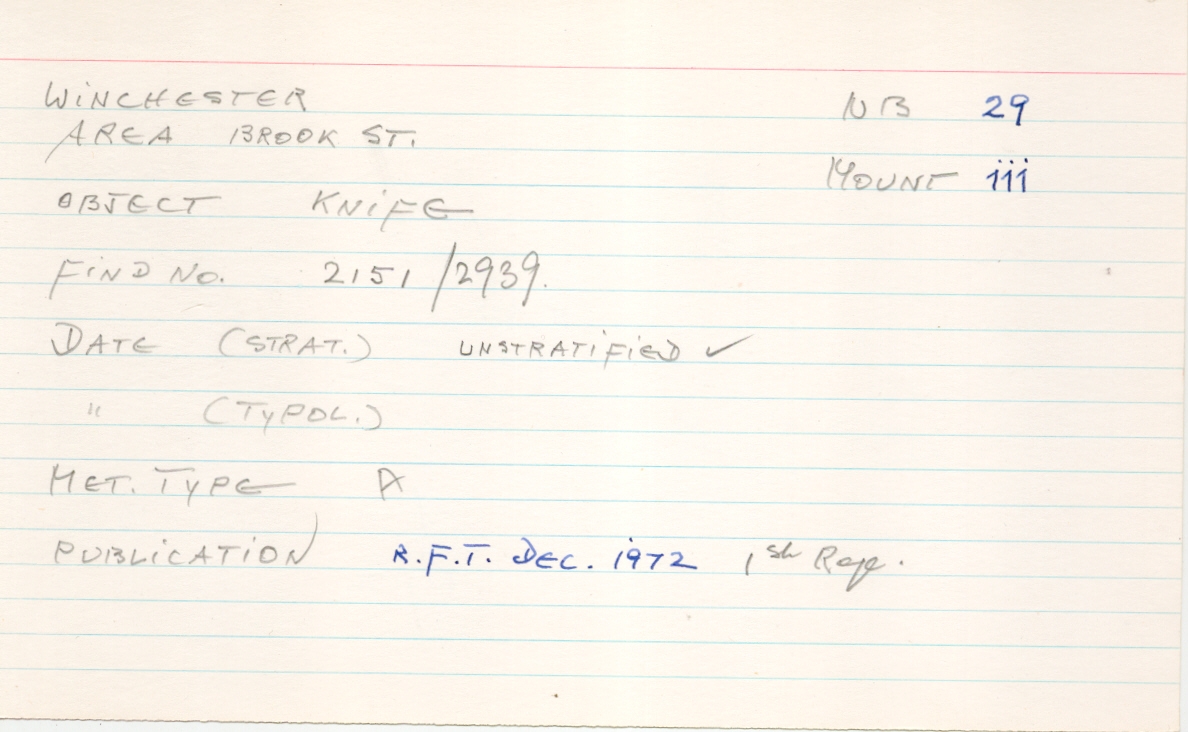 WINCHESTER NB 29
AREA BROOK ST.
MOUNT iii
OBJECT KNIFE
FIND NO. 2151/2939.
DATE (STRAT.) UNSTRATIFIED ✓
" (TYPOL.)
MET. TYPE A
PUBLICATION R.F.T. DEC. 1972 1st